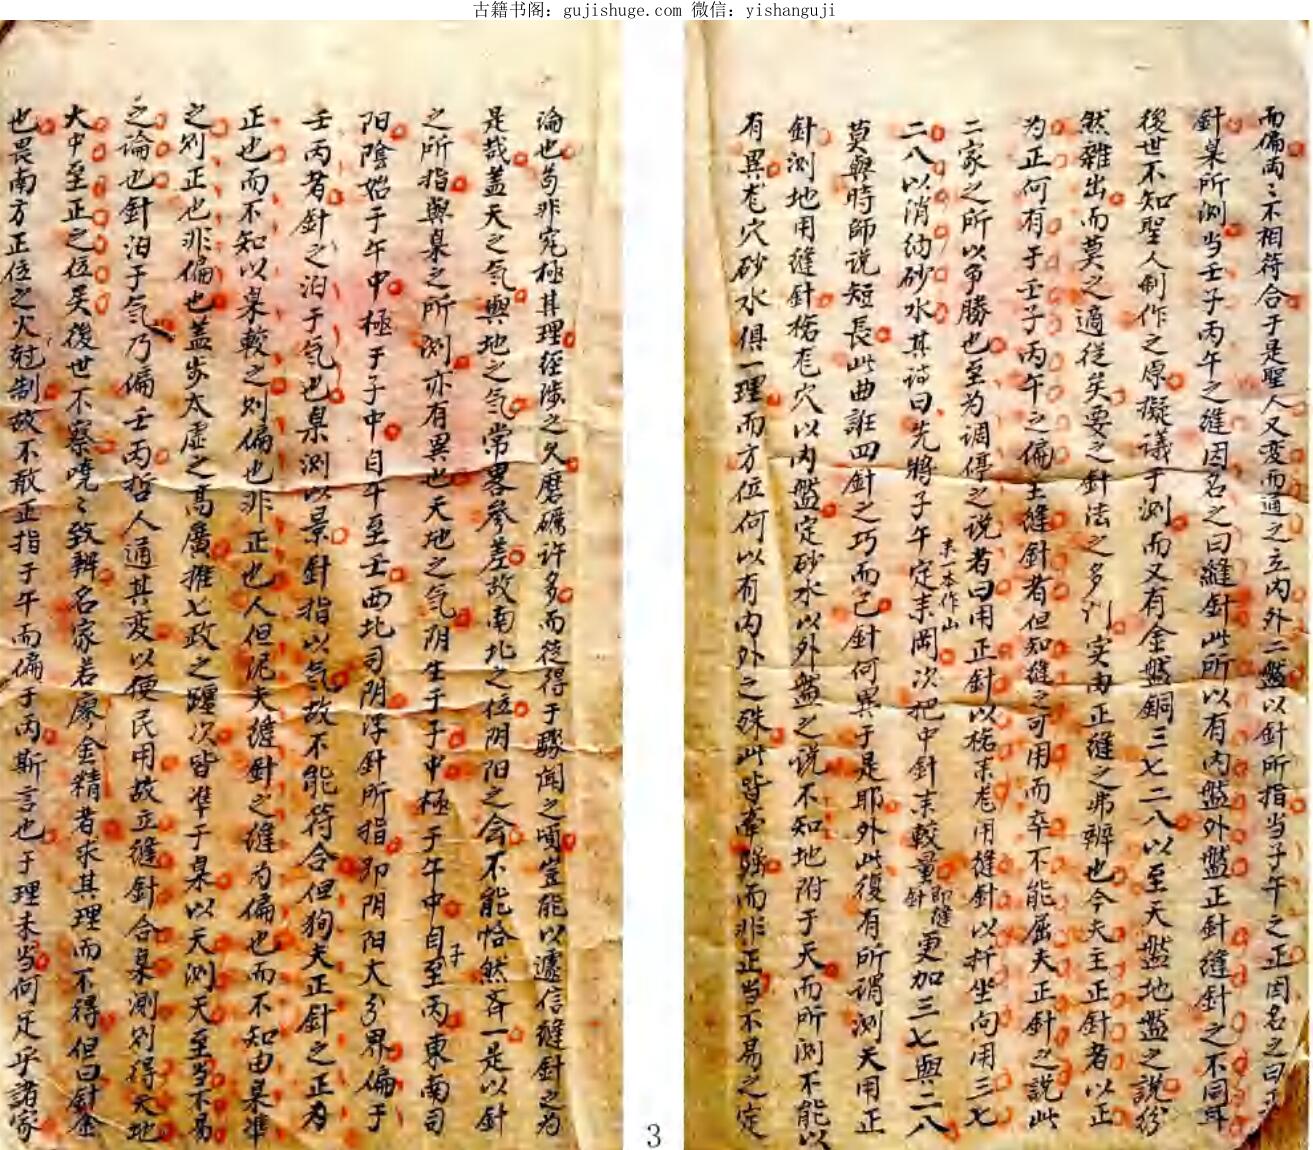 古籍书阁：gujishuge.com 微信：yishanguji
而偏両〻不相符合于是聖人又変而通之立内外二盤以針所指当子午之正因名之曰正
針臬所測当壬子丙午之縫因名之曰縫針此所以有内盤外盤正針縫針之不同耳
後世不知聖人制作之原擬議于測而又有金盤銅三七二八以至天盤地盤之説紛
然雜出而莫之適從矣要之針法之多訓实由正縫之弗辨也今夫主正針者以正
为正何有于壬子丙午之偏主縫針者但知縫之可用而卒不能屈夫正針之説此
二家之所以争勝也至为调停之说者曰用正針以格来龙用縫針以扦坐向用三七
二八以消纳砂水其詩曰先將子午定来岡次把中針来較量即縫針更加三七與二八
来一本作山
莫與時師说短長此曲誑四針之巧而已針何異于是耶外此復有所謂測天用正
針測地用縫針格龙穴以内盤定砂水以外盤之说不知地附于天而所測不能以
有異龙穴砂水俱一理而方位何以有内外之殊此皆牵强而非正当不易之定
論也苟非究極其理经涉之久磨礪许多而徒得于驟闻之頃豈能以遽信縫針之为
是哉盖天之気與地之気常畧参差故南北之位阴阳之会不能恰然斉一是以針
之所指與臬之所測亦有異也天地之気阴生于子中極于午中自子至丙東南司
阳陰始于午中極于子中自午至壬西北司阴浮針所指即阴阳大分界偏于
壬丙者針之泊于気也臬測以景針指以気故不能符合但狥夫正針之正为
正也而不知以臬較之则偏也非正也人但泥夫縫針之缝为偏也而不知由臬準
之则正也非偏也盖步太虚之高廣推七政之躔次皆準于臬以天測天至当不易
之论也針泊于気乃偏壬丙哲人通其変以便民用故立缝針合臬測则得天地
大中至正之位矣後世不察哓〻致辨名家若廖金精者求其理而不得但曰針金
也畏南方正位之火尅制故不敢正指于午而偏于丙斯言也于理未当何足乎諸家
3